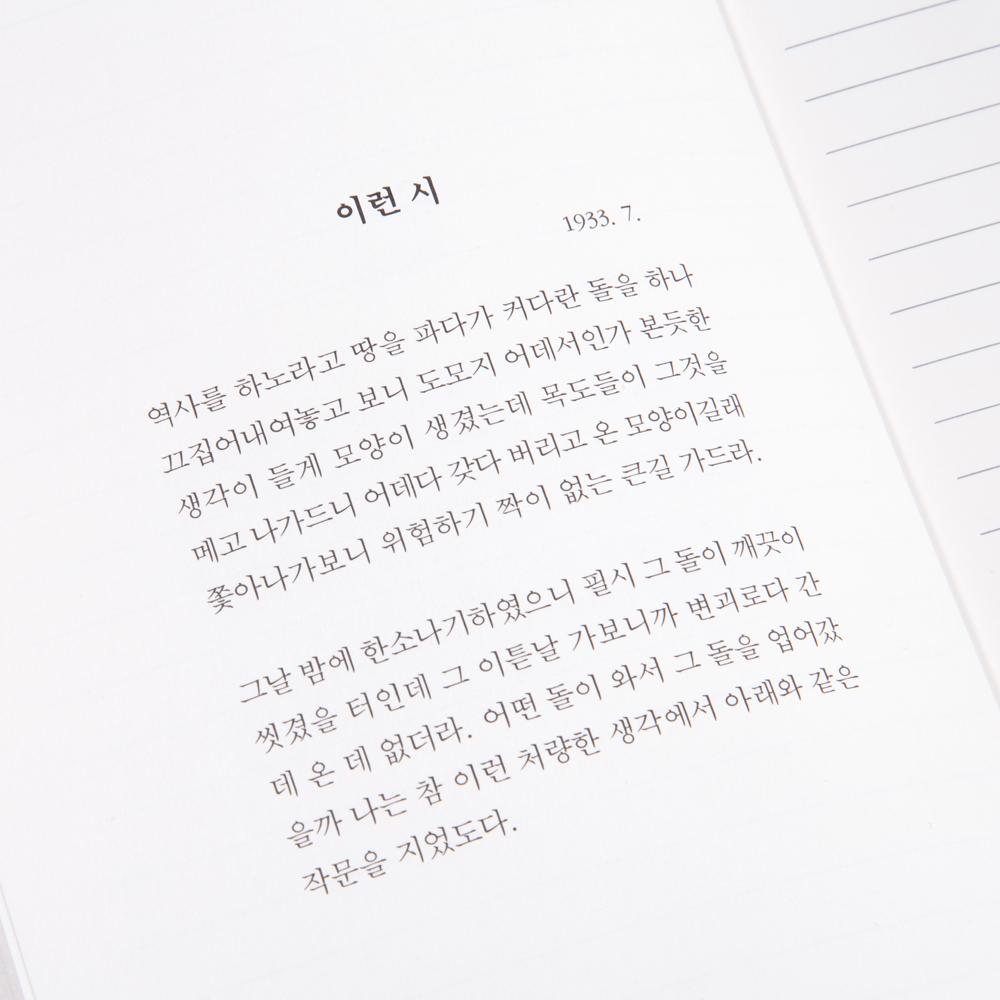 이런 시
1933. 7.
역사를 하노라고 땅을 파다가 커다란 돌을 하나
끄집어내여놓고 보니 도모지 어데서인가 본듯한
생각이 들게 모양이 생겼는데 목도들이 그것을
메고 나가드니 어데다 갖다 버리고 온 모양이길래
쫓아나가보니 위험하기 짝이 없는 큰길 가드라.
그날 밤에 한소나기하였으니 필시 그 돌이 깨끗이
씻겼을 터인데 그 이튿날 가보니까 변괴로다 간
데 온 데 없더라. 어떤 돌이 와서 그 돌을 업어갔
을까 나는 참 이런 처량한 생각에서 아래와 같은
작문을 지었도다.